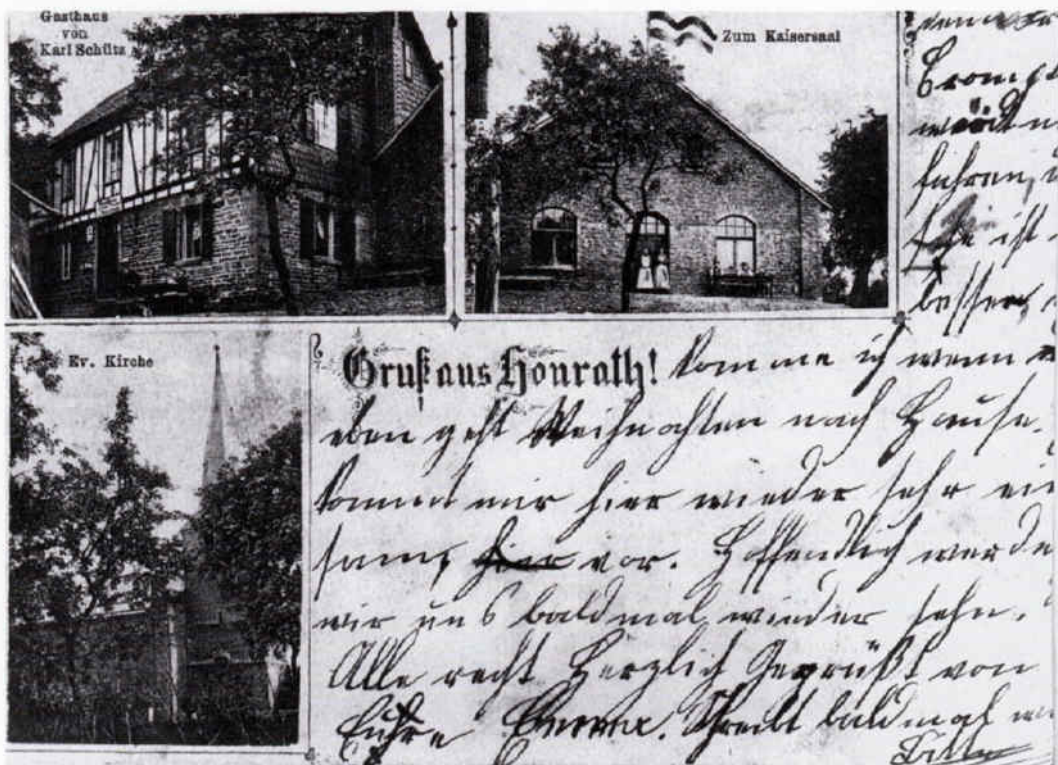 Gasthaus
von
Karl Schütz
Zum Kaisersaal
führen,
ist
besser,
Ev. Kirche
Gruß aus Honrath!
komme ich wenn
eben geht Weihnachten nach Hause.
kommt mir hier wieder sehr ein
sam, hier vor. Hoffendlich werde
wir uns bald mal wieder sehn.
Alle recht Herzlich Gegrüßt von
Euhre Emma. Schreibt bald mal